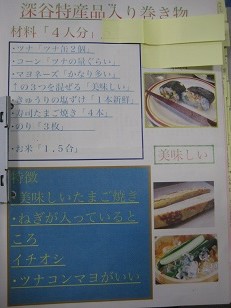 深谷特産品入り巻き物
材料「4人分」
・ツナ「ツナ缶2個」
・コーン「ツナの冠ぐらい」
・マヨネーズ「かなり多い」
↑の3つを混ぜる「美味しい」
・きゅうりの塩ずけ「1本新鮮」
・寿司たまご焼き「4本」
・のり「3枚」
・お米「1.5合」
美味しい
特徴
・美味しいたまご焼き
・ねぎが入っていると
ころ
イチオシ
・ツナコンマヨがいい